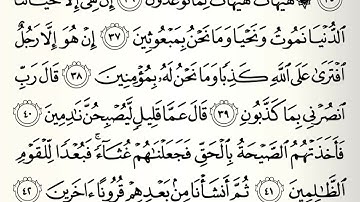 هَيْهَاتَ هَيْهَاتَ لِمَا تُوعَدُونَ ۝٣٦ إِنْ هِيَ إِلَّا حَيَاتُنَا
ٱلدُّنْيَا نَمُوتُ وَنَحْيَا وَمَا نَحْنُ بِمَبْعُوثِينَ ۝٣٧ إِنْ هُوَ إِلَّا رَجُلٌ
ٱفْتَرَىٰ عَلَى ٱللَّهِ كَذِبًا وَمَا نَحْنُ لَهُۥ بِمُؤْمِنِينَ ۝٣٨ قَالَ رَبِّ
ٱنصُرْنِي بِمَا كَذَّبُونِ ۝٣٩ قَالَ عَمَّا قَلِيلٍ لَّيُصْبِحُنَّ نَٰدِمِينَ ۝٤٠
فَأَخَذَتْهُمُ ٱلصَّيْحَةُ بِٱلْحَقِّ فَجَعَلْنَٰهُمْ غُثَآءً ۚ فَبُعْدًا لِّلْقَوْمِ
ٱلظَّٰلِمِينَ ۝٤١ ثُمَّ أَنشَأْنَا مِنۢ بَعْدِهِمْ قُرُونًا ءَاخَرِينَ ۝٤٢